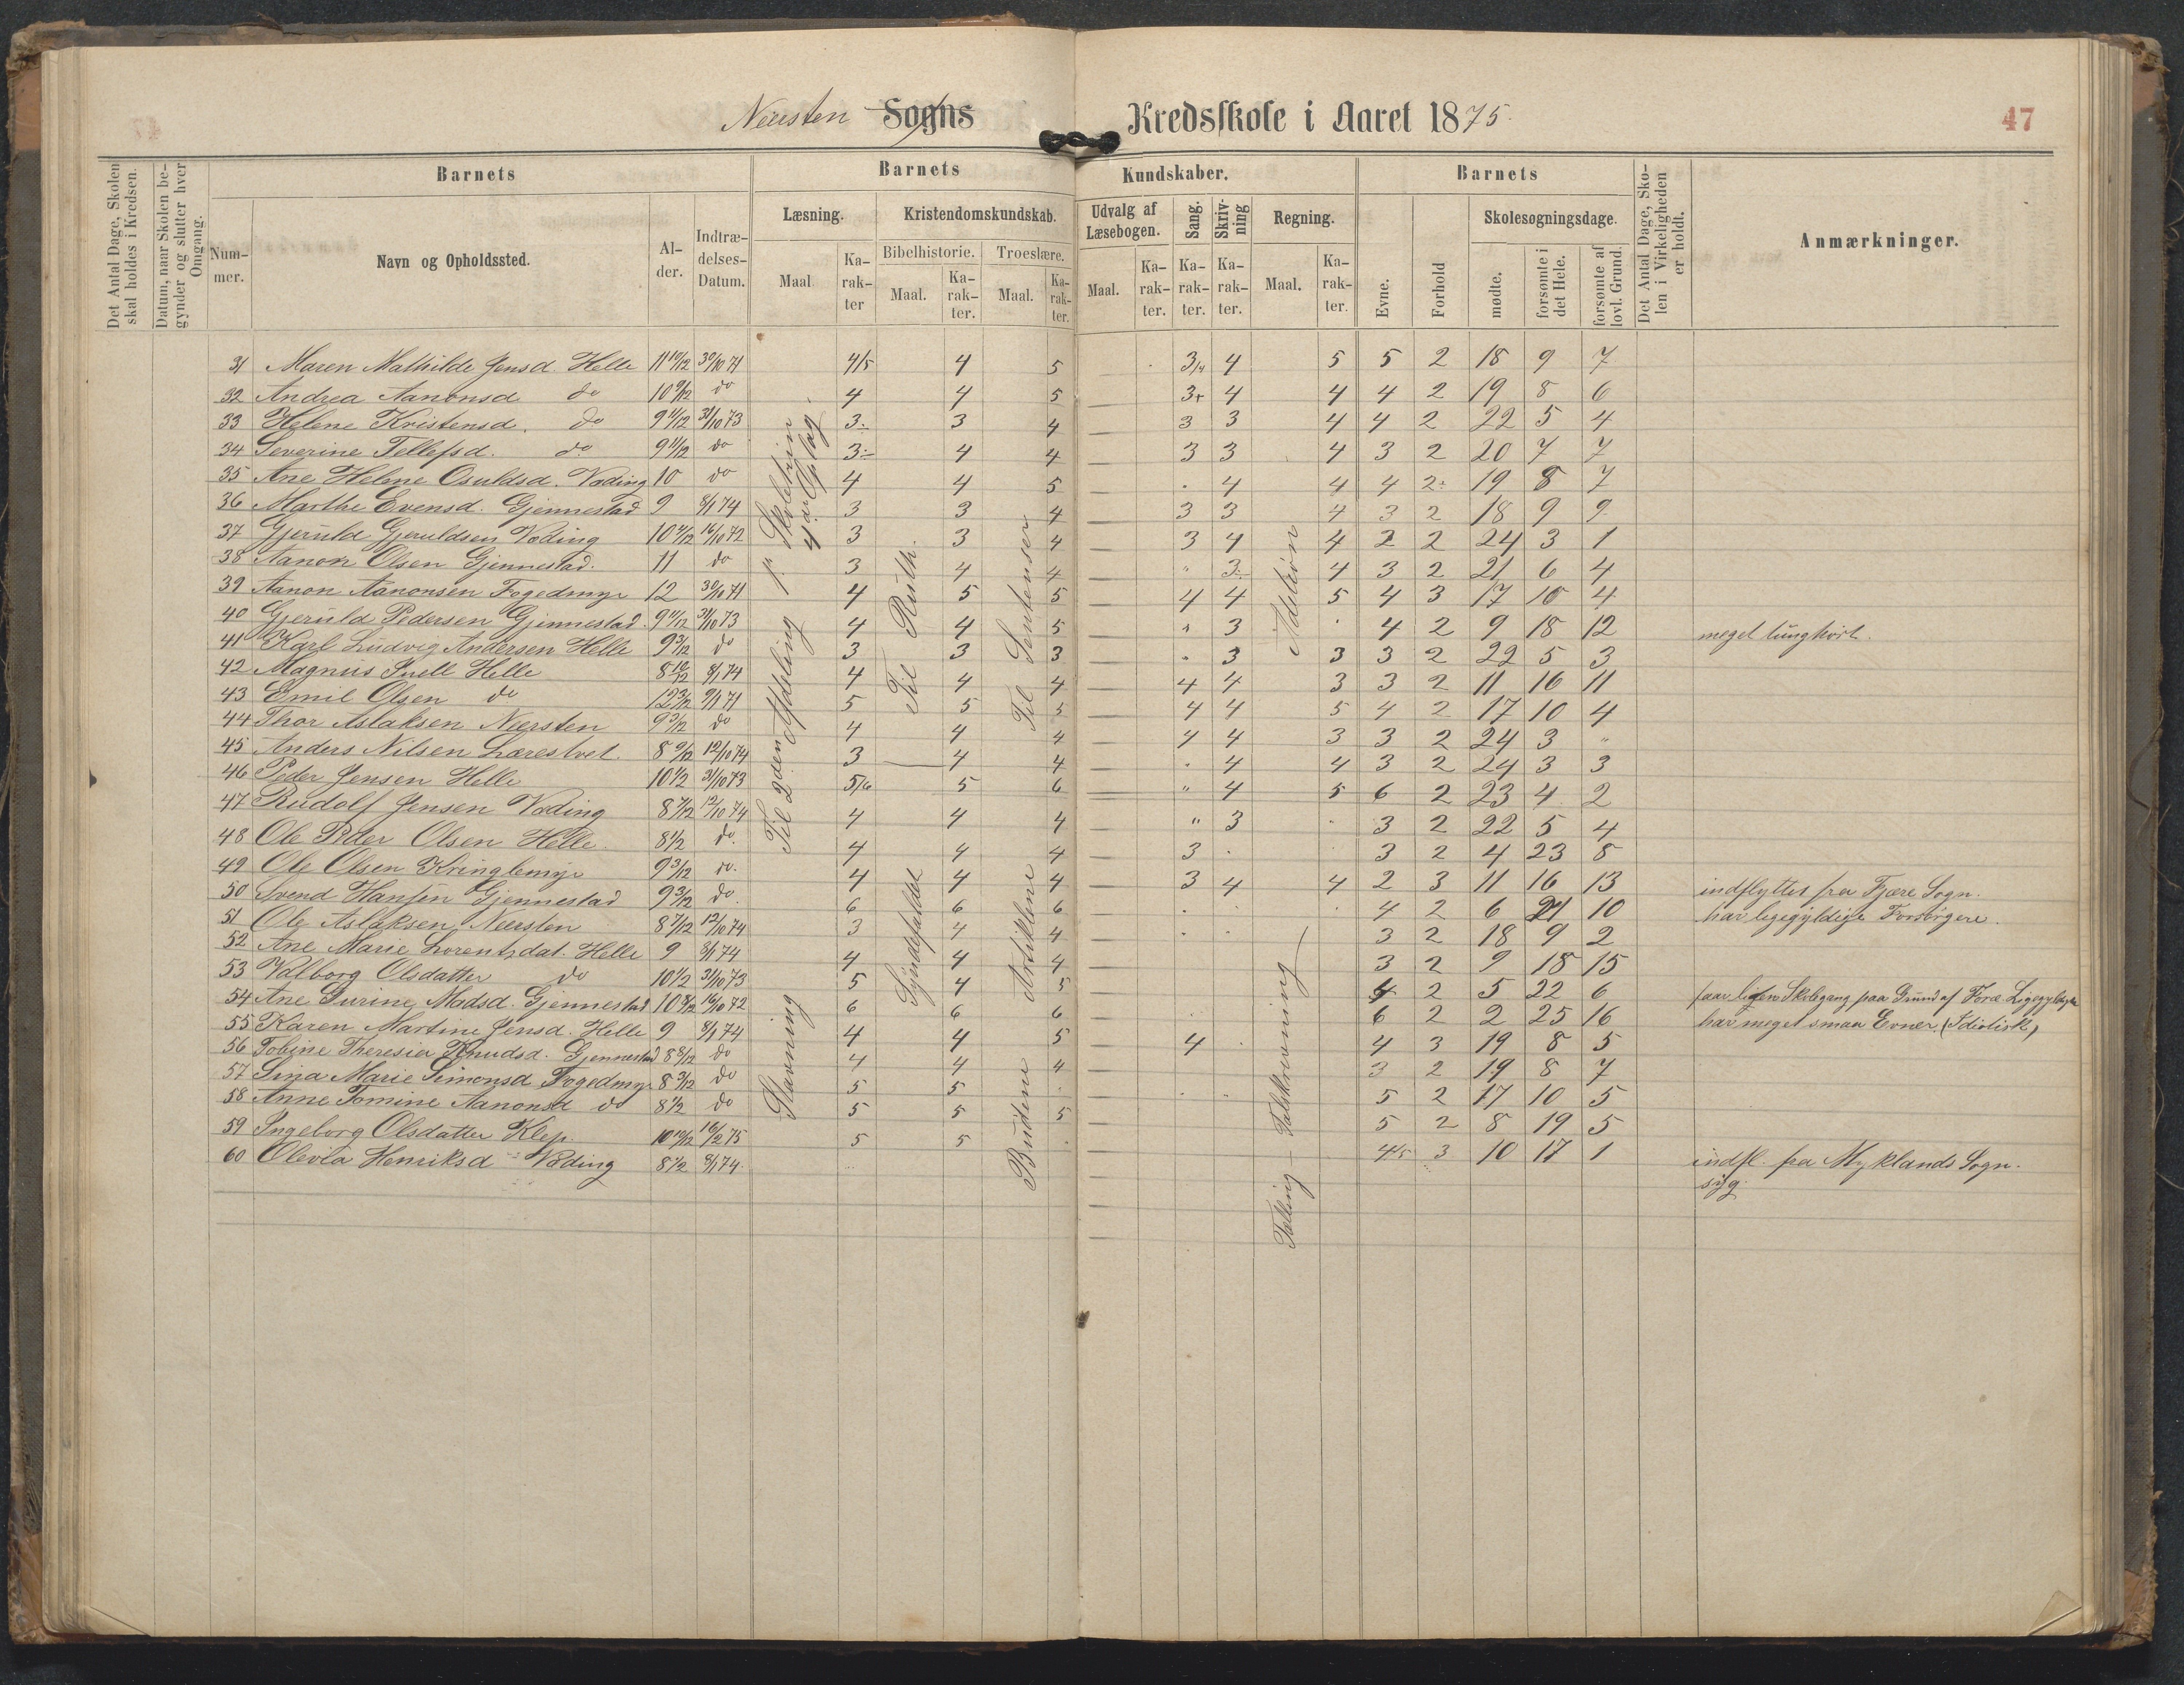 Neersten Sogns Kredsskole i Aaret 1875.
47
Det Antal Dage, Skolen skal holdes i Kredsen.
Datum, naar Skolen begynder og slutter hver Omgang.
Barnets
Nummer.
Navn og Opholdssted.
Alder.
Indtrædelses-Datum.
Barnets Kundskaber.
Læsning.
Maal
Karakter
Kristendomskundskab.
Bibelhistorie.
Maal.
Karakter.
Troeslære.
Maal.
Karakter.
Udvalg af Læsebogen.
Maal.
Karakter.
Sang.
Karakter.
Skrivning
Karakter.
Regning.
Maal.
Karakter.
Barnets
Evne.
Forhold
Skolesøgningsdage.
mødte.
forsømte i det Hele.
forsømte af lovl. Grund.
Det Antal Dage, Skolen i Virkeligheden er holdt.
Anmærkninger.
31 Maren Mathilde Jensd. Helle 11 10/12 30/10 71 4/5 4 5 3/4 4 5 5 2 18 9 7
32 Andrea Aanonsd do 10 9/12 do 4 4 5 3+ 4 4 4 2 19 8 6
33 Helene Kristensd. do 9 11/12 31/10 73 3 3 4 3 3 4 4 2 22 5 4
34 Severine Tellefsd. do 9 11/12 do 3 4 4 3 3 4 3 2 20 7 7
35 Ane Helene Osuldsd. Væding 10 do 4 4 5 4 4 4 2 19 8 7
36 Marthe Evensd. Gjennestad 9 8/1 74 3 3 4 3 3 4 3 2 18 9 9
37 Gjeruld Gjeruldsen Væding 16/10 72 3 3 4 3 4 4 2 2 24 3 1
38 Aanon Olsen Gjennestad. 11 do 3 4 4 " 3 4 3 2 21 6 4
39 Aanon Aanonsen Fogedmyr 12 30/10 71 4 5 5 4 4 5 4 3 17 10 4
40 Gjeruld Pedersen Gjennestad. 9 11/12 31/10 73 4 4 5 " 3 4 2 9 18 12 meget tunghørt.
41 Karl Ludvig Andersen Helle 9 3/12 do 3 3 3 " 3 3 3 2 22 5 3
42 Magnus Snell Helle 8 10/12 8/1 74 4 4 4 4 4 3 3 2 11 16 11
43 Emil Olsen do 12 3/12 9/1 71 5 5 5 4 4 5 4 2 17 10 4
44 Thor Aslaksen Neersten 9 3/12 do 4 4 4 4 4 3 3 2 24 3 "
45 Anders Nilsen Lærestvet 8 9/12 12/10 74 3 4 4 4 4 3 2 24 3 3
46 Peder Jensen Helle 10 1/2 31/10 73 5/6 5 6 " 4 5 6 2 23 4 2
47 Rudolf Jensen Væding 8 7/12 12/10 74 4 4 4 " 3 3 2 22 5 4
48 Ole Peder Olsen Helle 8 1/2 do. 4 4 4 3 3 2 4 23 8
49 Ole Olsen Kringlemyr 9 3/12 do. 4 4 4 3 4 4 2 3 11 16 13 indflyttet fra Fjære Sogn.
50 Svend Hansen Gjennestad 9 3/12 do. 6 6 6 4 2 6 21 10 har ligegyldige Forsørgere.
51 Ole Aslaksen Neersten 8 7/12 12/10 74 3 4 4 3 2 18 9 2
52 Ane Marie Lorentzdat. Helle 9 8/1 74 4 4 4 3 2 9 18 15
53 Valborg Olsdatter do 10 1/2 31/10 73 5 4 5 2 5 22 6 faar liden Skolegang paa Grund af Foræ.
54 Ane Gurine Madsd. Gjennestad 10 8/12 16/10 72 6 6 6 6 2 2 25 16 har meget smaa Evner (Idiotisk)
55 Karen Martine Jensd. Helle 9 8/1 74 4 4 5 4 4 3 19 8 5
56 Tobine Theresia Knudsd. Gjennestad 8 8/12 do 4 4 4 3 2 19 8 7
57 Sina Marie Simonsd Fogedmyr 8 3/12 do 5 5 5 2 17 10 5
58 Anne Tomine Aanonsd do 8 1/2 do 5 5 5 5 2 8 19 5
59 Ingeborg Olsdatter Klep. 10 10/12 16/2 75 5 5 4/5 3 10 17 1 indfl. fra Myklands Sogn.
60 Olevia Henriksd Væding 8 1/2 8/1 74. syg.
Til 2den Afdeling 1ste Skoletrin
4 ar Oplag
Stavning
Til Ruth.
Syndefaldet
Til Sentenser
Artiklene
Budene
Addition
Tælling - Talskrivning